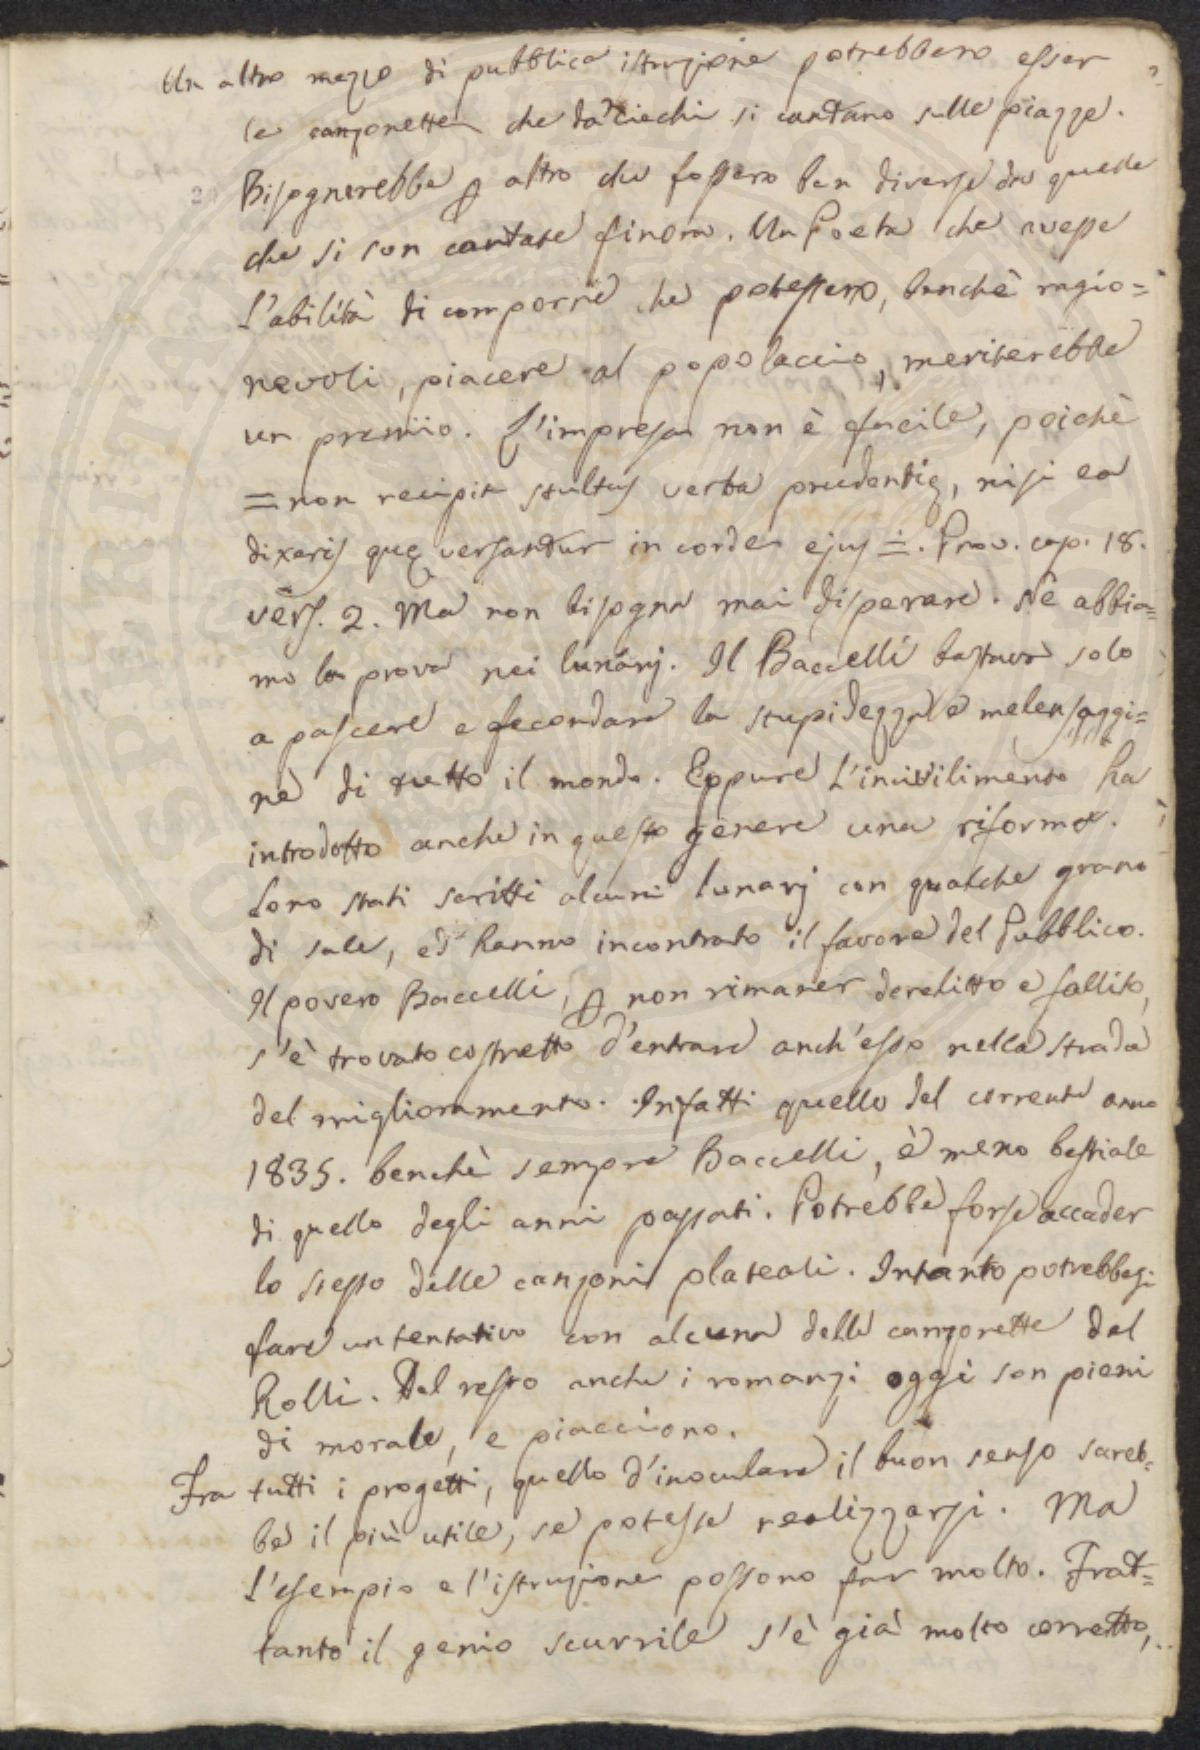 Un altro mezzo di pubblica istruzione potrebbero esser
le canzonette che da' ciechi si cantano sulle piazze.
Bisognerebbe p altro che fossero ben diverse da quelle
che si son cantate finora. Un Poeta che avesse
l'abilità di comporne che potessero, benchè ragio=
nevoli, piacere al popolaccio, meriterebbe
un premio. L'impresa non è facile, poichè
= non recipit stultus verba prudentię, nisi ea
dixeris quę versantur in corde ejus =. Prov. cap. 18.
vers. 2. Ma non bisogna mai disperare. Ne abbia=
mo la prova nei lunarj. Il Baccelli bastava solo
a pascere e fecondare la stupidezza e melensaggi=
ne di tutto il mondo. Eppure l'incivilimento ha
introdotto anche in questo genere una riforma.
Sono stati scritti alcuni lunarj con qualche grano
di sale, ed hanno incontrato il favore del Pubblico.
Il povero Baccelli, p non rimaner derelitto e fallito,
s'è trovato costretto d'entrare anch'esso nella strada
del miglioramento. Infatti quello del corrente anno
1835. benchè sempre Baccelli, è meno bestiale
di quello degli anni passati. Potrebbe forse accader
lo stesso delle canzoni plateali. Intanto potrebbesi
fare un tentativo con alcuna delle canzonette del
Rolli. Del resto anche i romanzi oggi son pieni
di morale, e piacciono.
Fra tutti i progetti, quello d'inoculare il buon senso sareb=
be il più utile, se potesse realizzarsi. Ma
l'esempio e l'istruzione possono far molto. Frat=
tanto il genio scurrile s'è già molto corretto,